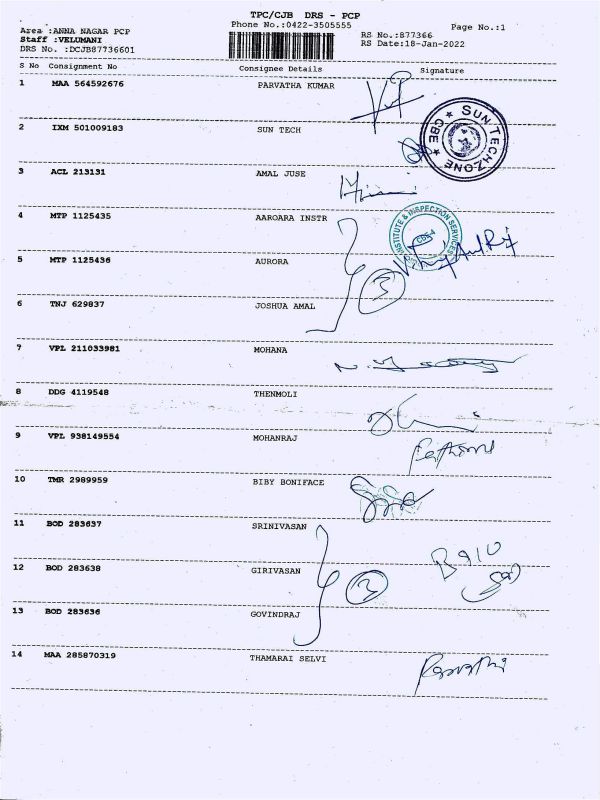 TPC/CJB DRS - PCP
Phone No.:0422-3505555
Page No.:1
Area :ANNA NAGAR PCP
Staff :VELUMANI
DRS No. :DCJB87736601
RS No.:877366
RS Date:18-Jan-2022
S No Consignment No Consignee Details Signature
1 MAA 564592676 PARVATHA KUMAR
2 IXM 501009183 SUN TECH
SUN TECHZONE * CBE *
3 ACL 213131 AMAL JUSE
4 MTP 1125435 AAROARA INSTR
INSTITUTE & INSPECTION SERVICES
5 MTP 1125436 AURORA
3
6 TNJ 629837 JOSHUA AMAL
7 VPL 211033981 MOHANA
8 DDG 4119548 THENMOLI
9 VPL 938149554 MOHANRAJ
10 TMR 2989959 BIBY BONIFACE
11 BOD 283637 SRINIVASAN
12 BOD 283638 GIRIVASAN
3
13 BOD 283636 GOVINDRAJ
14 MAA 285870319 THAMARAI SELVI